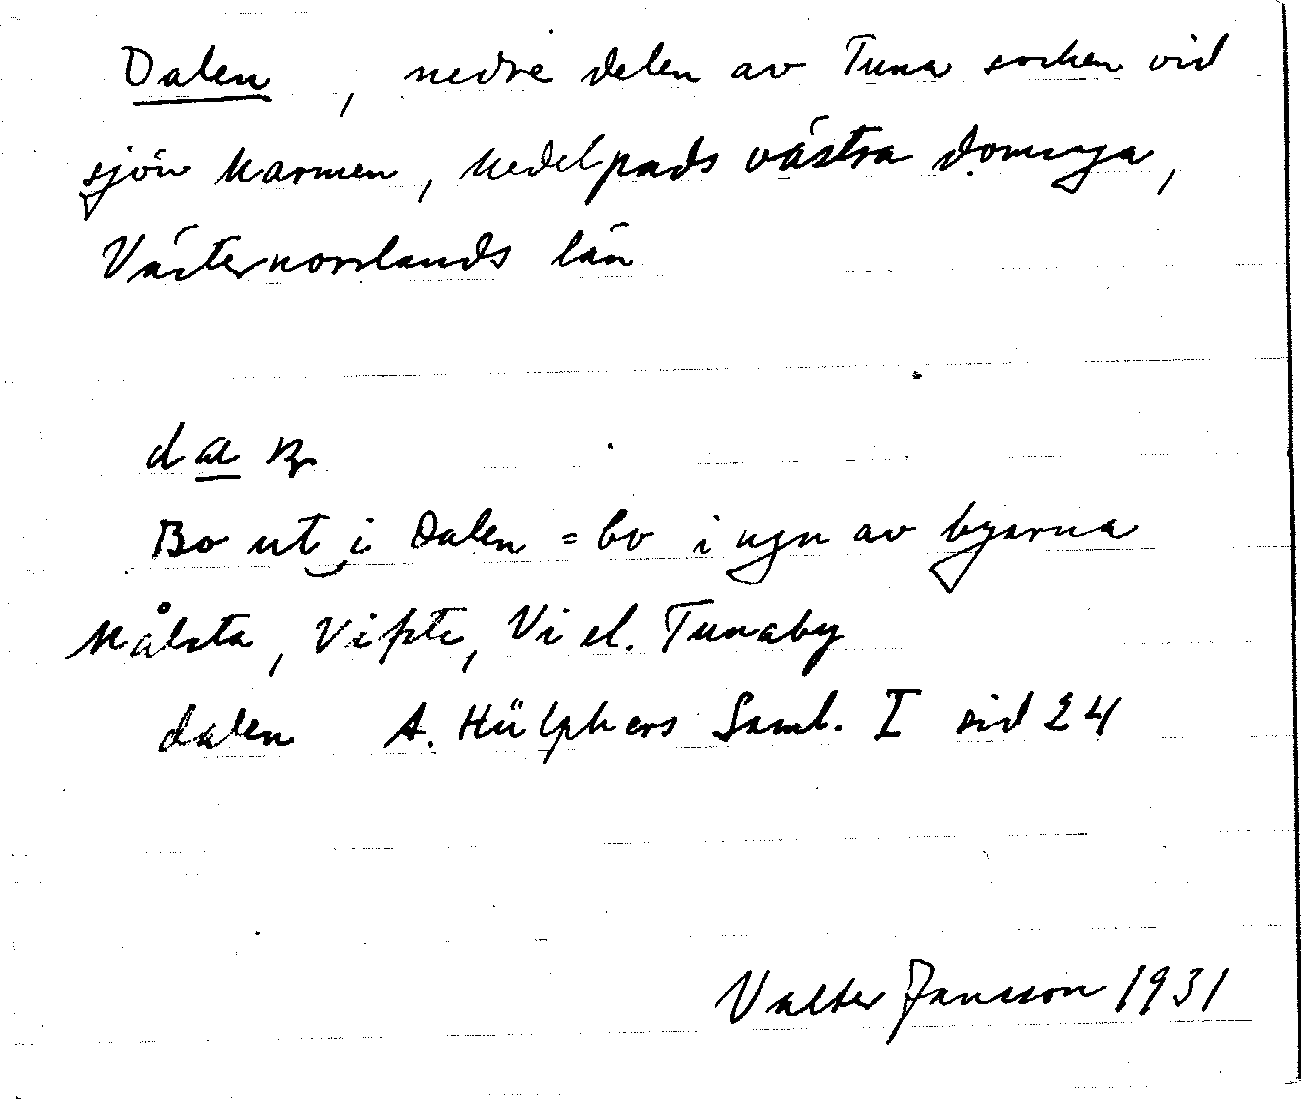 Dalen, nedre delen av Tuna socken vid
sjön Marmen, Medelpads västra domsaga,
Västernorrlands län
Bo ut i Dalen = bo i ngn av byarna
Målsta, Vifsta, Vi el. Tunaby
dalen A. Hülphers Saml. I sid 24
Valter Jansson 1931